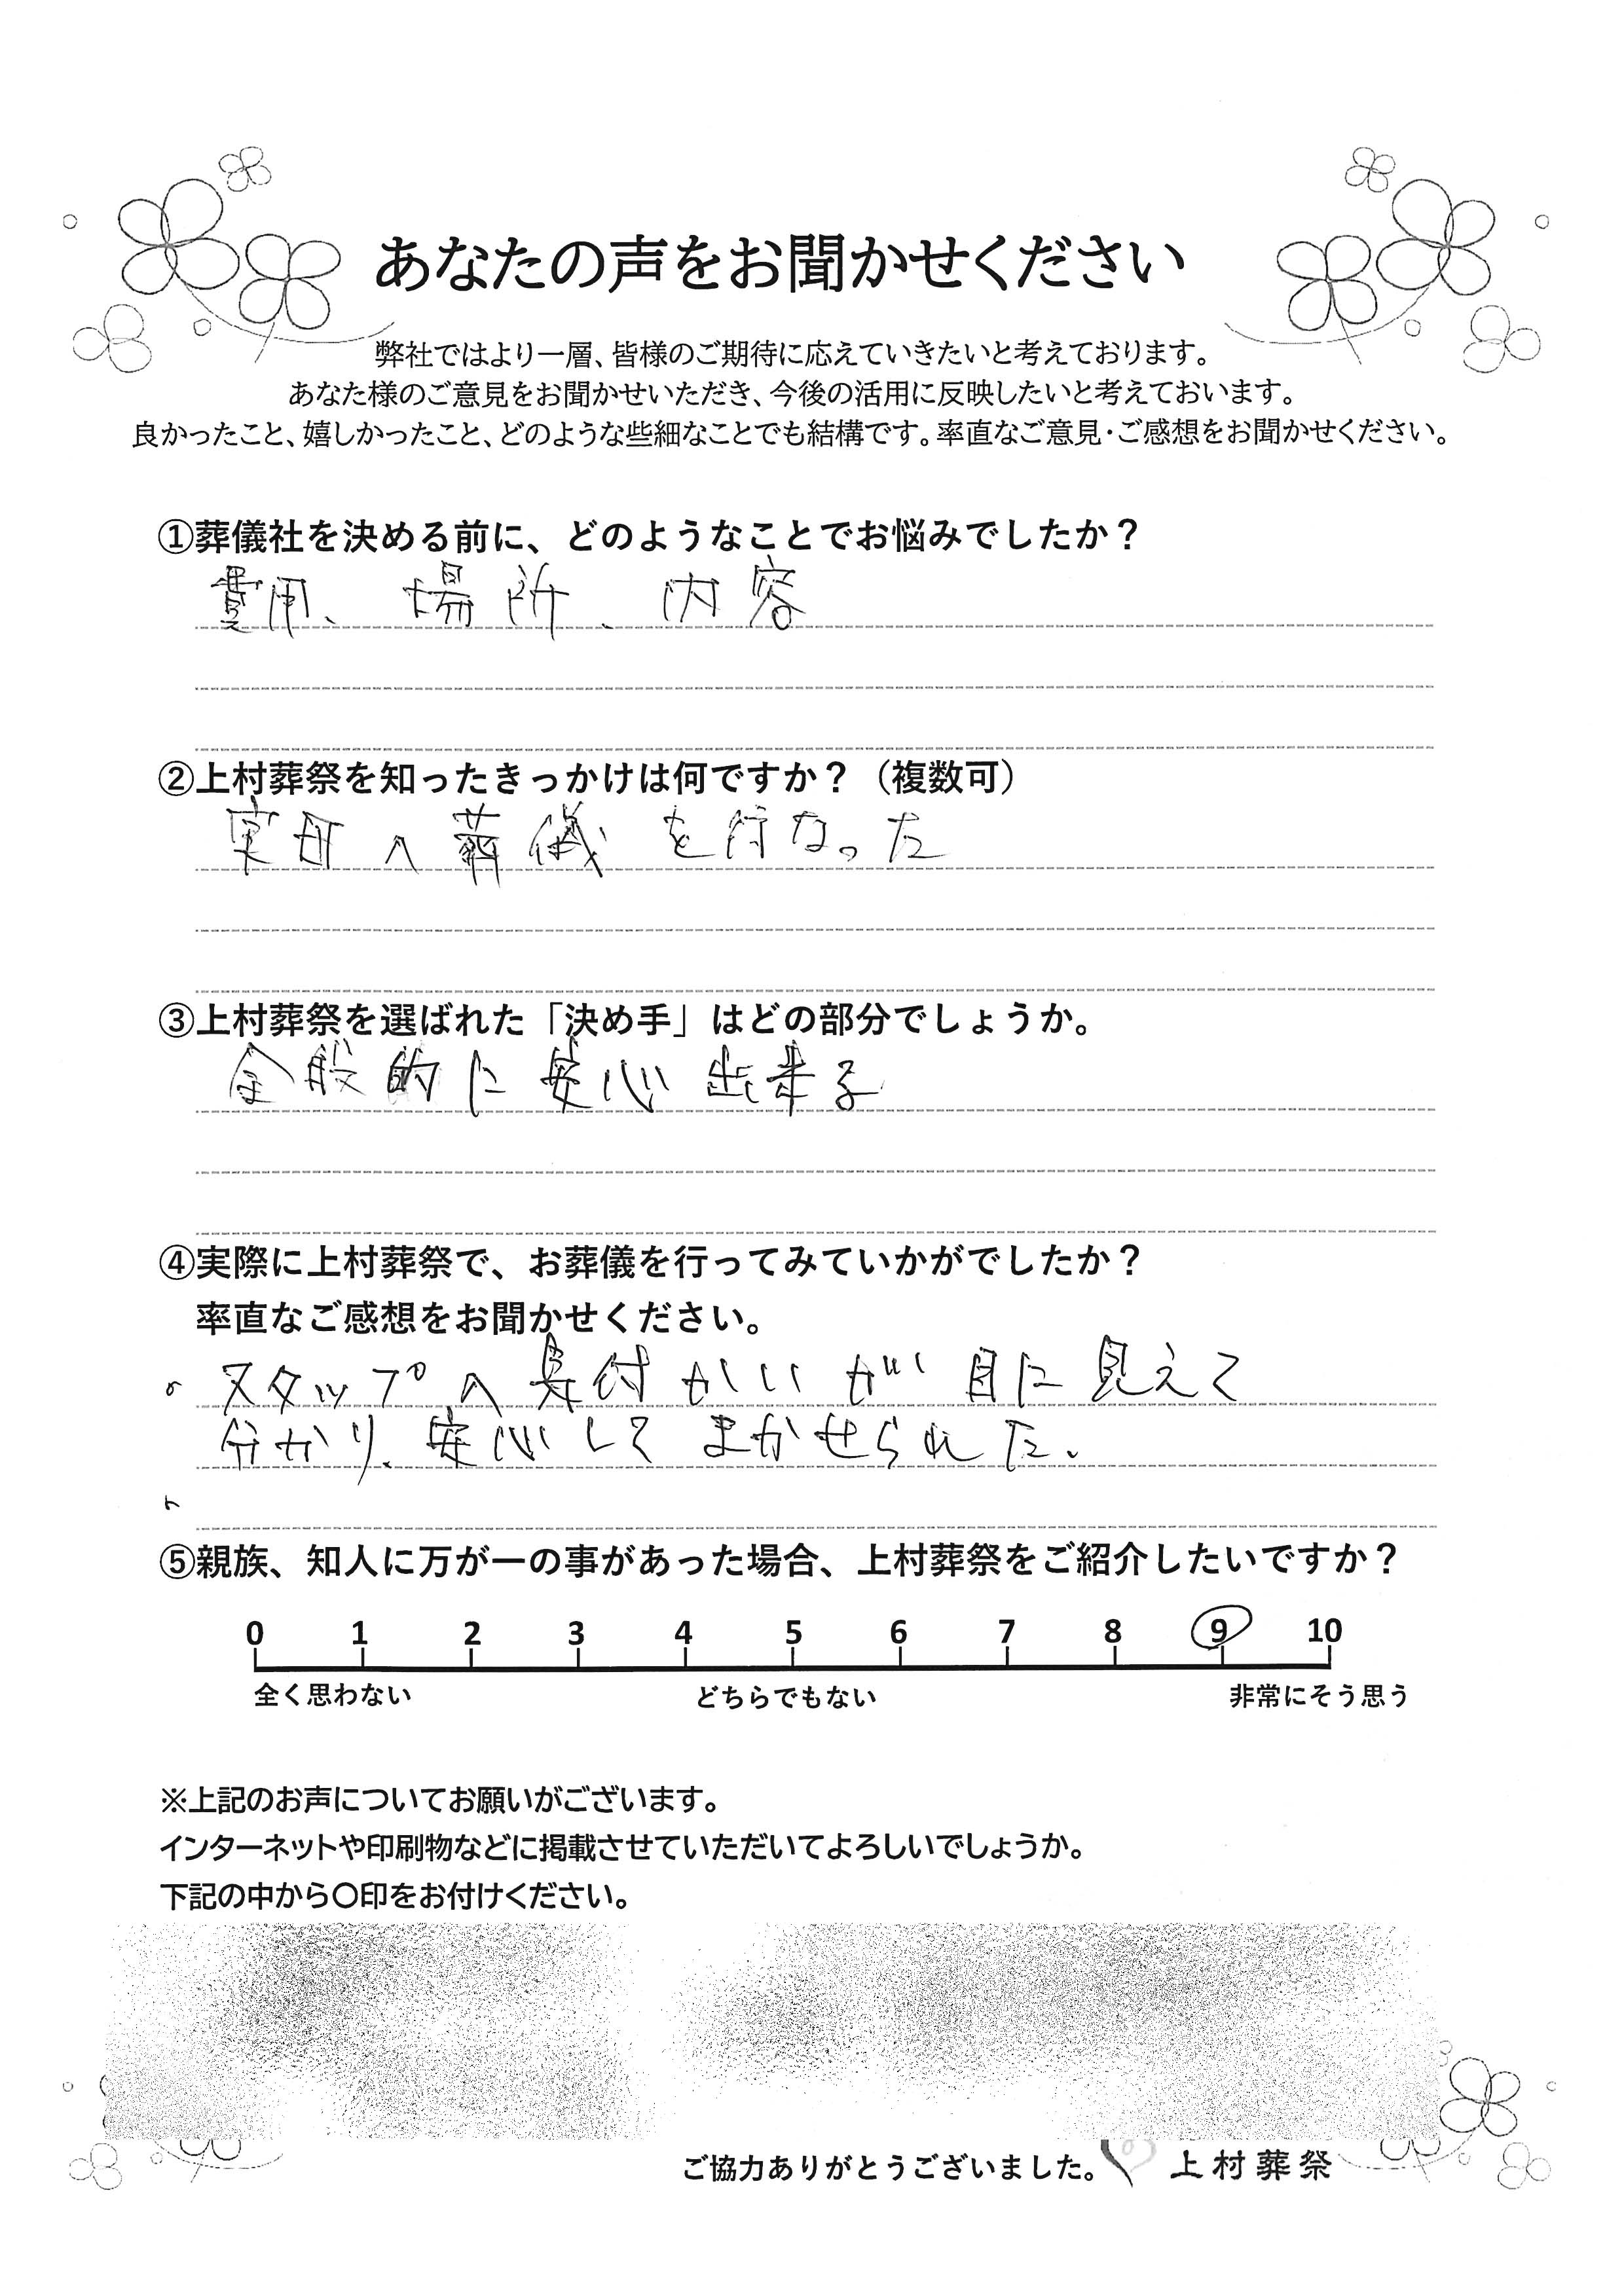 あなたの声をお聞かせください
弊社ではより一層、皆様のご期待に応えていきたいと考えております。
あなた様のご意見をお聞かせいただき、今後の活用に反映したいと考えておいます。
良かったこと、嬉しかったこと、どのような些細なことでも結構です。率直なご意見・ご感想をお聞かせください。
①葬儀社を決める前に、どのようなことでお悩みでしたか？
費用、場所、内容
②上村葬祭を知ったきっかけは何ですか？（複数可）
実母の葬儀を行なった
③上村葬祭を選ばれた「決め手」はどの部分でしょうか。
全般的に安心出来る
④実際に上村葬祭で、お葬儀を行ってみていかがでしたか？
率直なご感想をお聞かせください。
スタップの気付かいが目に見えて
分かり、安心してまかせられた。
⑤親族、知人に万が一の事があった場合、上村葬祭をご紹介したいですか？
0 1 2 3 4 5 6 7 8 9 10
全く思わない どちらでもない 非常にそう思う
※上記のお声についてお願いがございます。
インターネットや印刷物などに掲載させていただいてよろしいでしょうか。
下記の中から〇印をお付けください。
ご協力ありがとうございました。 上村葬祭